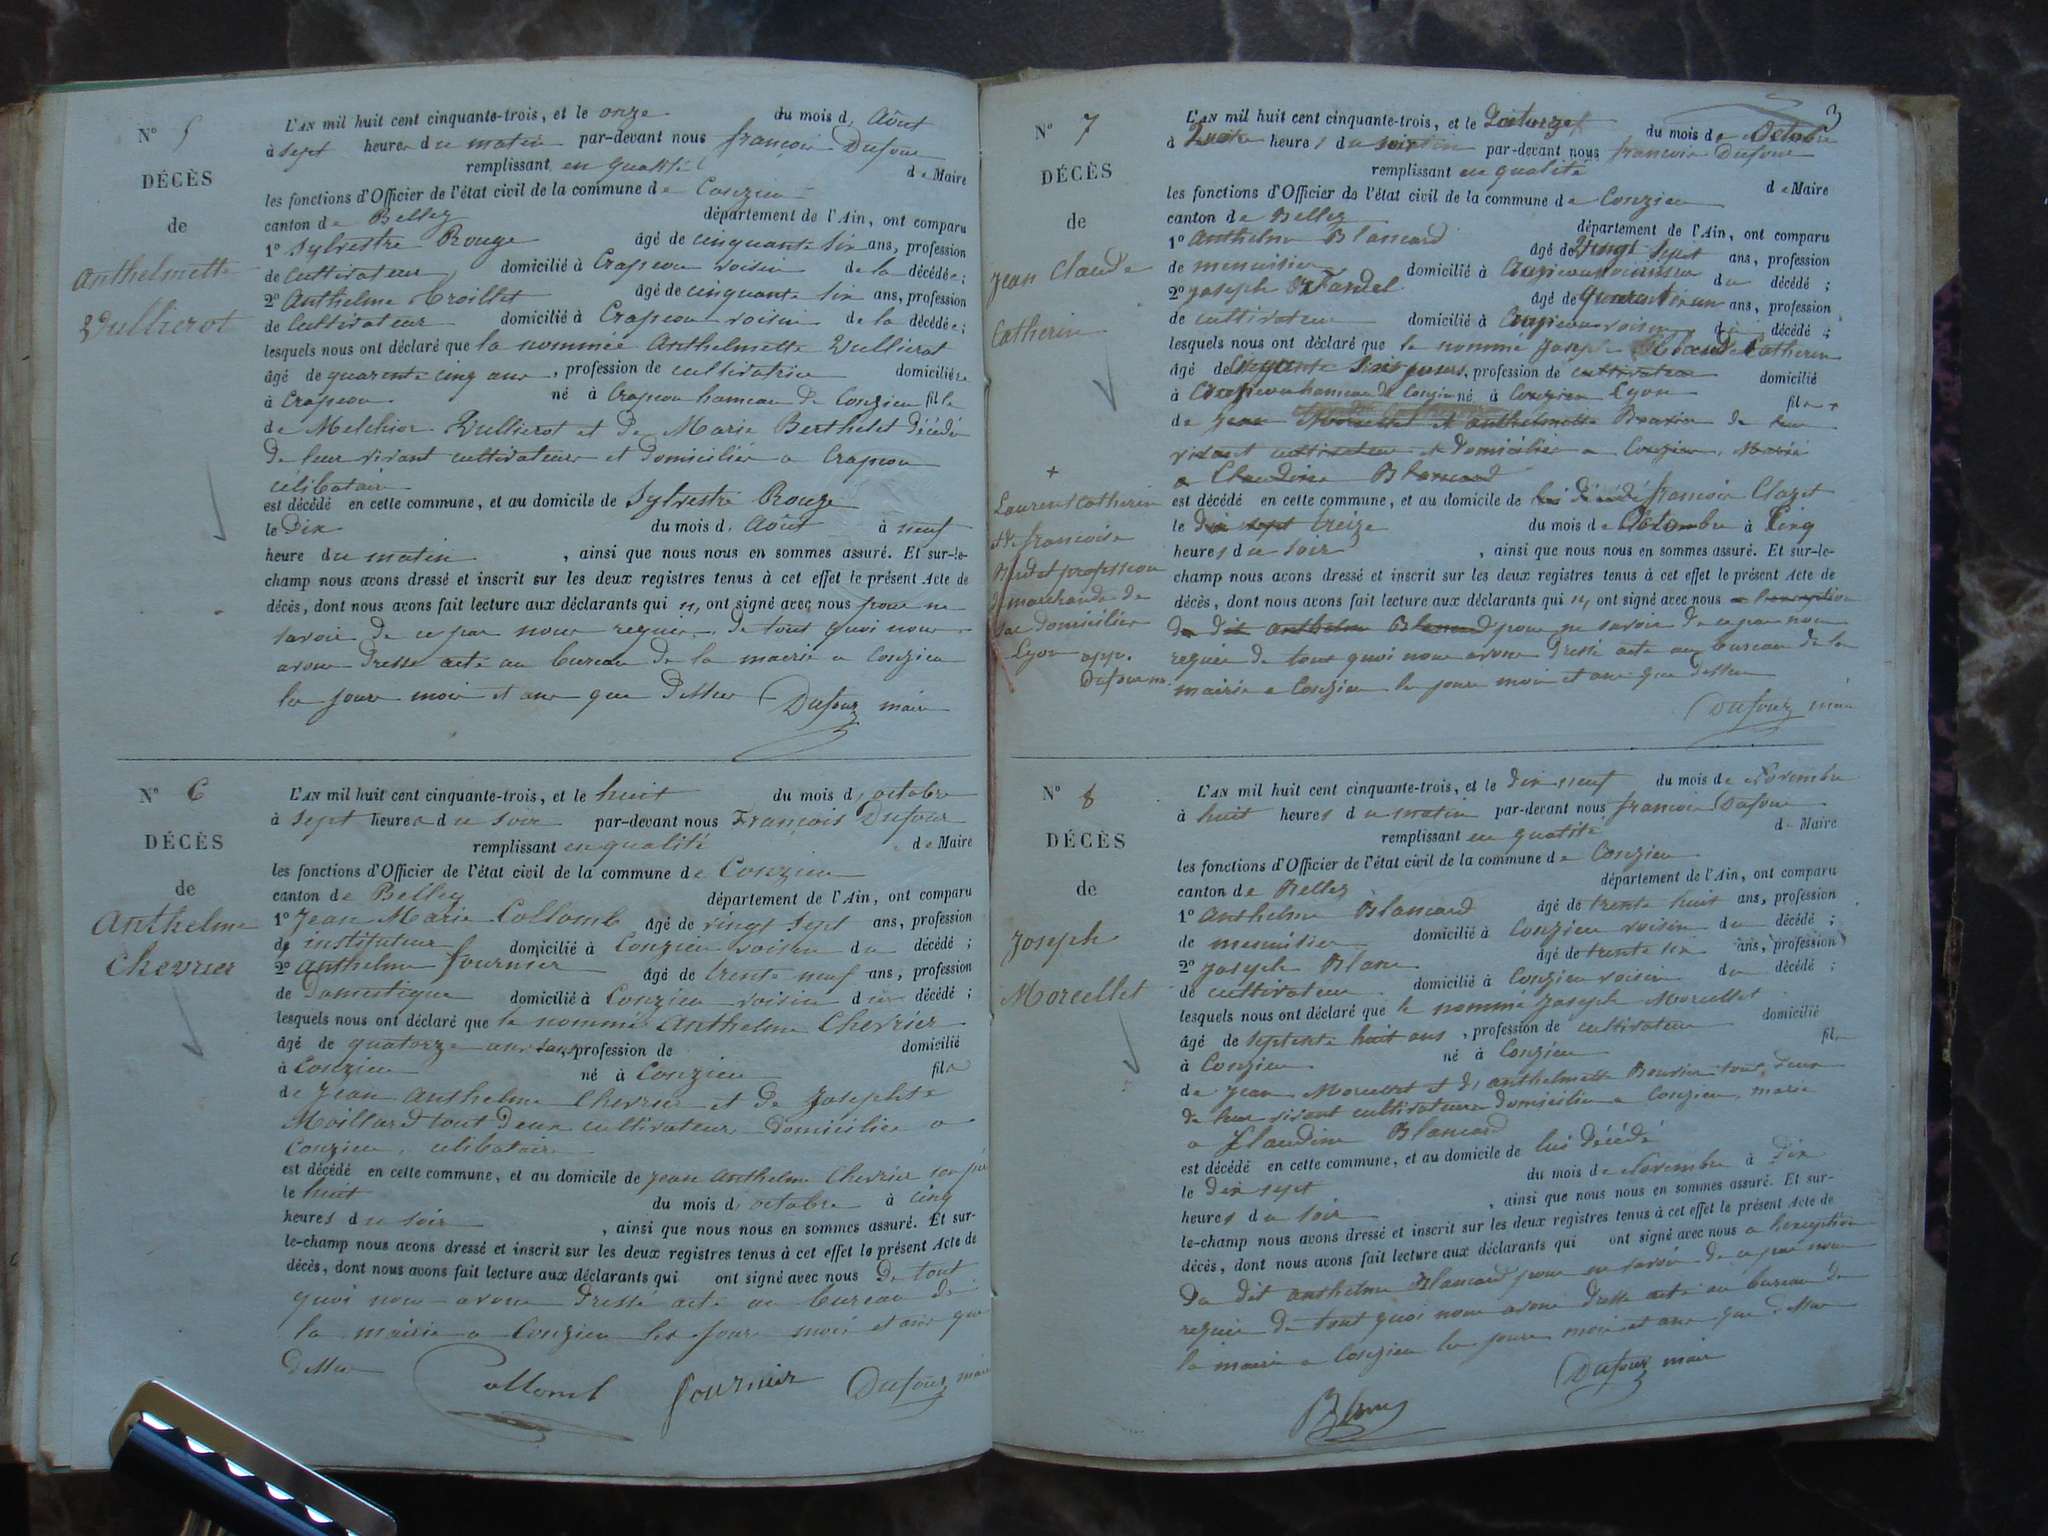 N° 5
DÉCÈS
de
Anthelmette
Vullierot
L'AN mil huit cent cinquante-trois, et le onze du mois d' Août
à sept heures du matin par-devant nous françois Dufour
remplissant en qualité de Maire
les fonctions d'Officier de l'état civil de la commune de Conzieu
canton de Belley département de l'Ain, ont comparu
1° Sylvestre Rouge âgé de cinquante six ans, profession
de cultivateur domicilié à Crapeou voisin de la décédée ;
2° Anthelme Croillet âgé de cinquante six ans, profession
de cultivateur domicilié à Crapeou voisin de la décédée ;
lesquels nous ont déclaré que la nommée Anthelmette Vullierot
âgé de quarente cinq ans, profession de cultivatrice domicilié
à Crapeou né à Crapeou hameau de Conzieu fille
de Melchior Vullierot et de Marie Berthelet décédé
de leur vivant cultivateurs et domiciliés a Crapeou
célibataire
est décédé en cette commune, et au domicile de Sylvestre Rouge
le dix du mois d' Août à neuf
heure du matin, ainsi que nous nous en sommes assuré. Et sur-le-
champ nous avons dressé et inscrit sur les deux registres tenus à cet effet le présent Acte de
décès, dont nous avons fait lecture aux déclarants qui n' ont signé avec nous pour ne
savoir de ce par nous requis. de tout quoi nous
avons dressé acte au bureau de la mairie a Conzieu
les jour mois et an que dessus Dufour maire
N° 6
DÉCÈS
de
Anthelme
Chevrier
L'AN mil huit cent cinquante-trois, et le huit du mois d' octobre
à sept heures du soir par-devant nous François Dufour
remplissant en qualité de Maire
les fonctions d'Officier de l'état civil de la commune de Conzieu
canton de Belley département de l'Ain, ont comparu
1° Jean Marie Collomb âgé de vingt sept ans, profession
d' instituteur domicilié à Conzieu voisin du décédé ;
2° Anthelme fournier âgé de trente neuf ans, profession
de Domestique domicilié à Conzieu voisin du décédé ;
lesquels nous ont déclaré que le nommé Anthelme Chevrier
âgé de quatorze ans sans profession de domicilié
à Conzieu né à Conzieu fils
de Jean Anthelme Chevrier et de Josephte
Moillard tout deux cultivateurs domiciliés a
Conzieu, célibataire
est décédé en cette commune, et au domicile de Jean Anthelme Chevrier son père
le huit du mois d' octobre à cinq
heures du soir, ainsi que nous nous en sommes assuré. Et sur-
le-champ nous avons dressé et inscrit sur les deux registres tenus à cet effet le présent Acte de
décès, dont nous avons fait lecture aux déclarants qui ont signé avec nous De tout
quoi nous avons dressé acte au bureau de
la mairie a Conzieu les jour mois et an que
dessus Collomb fournier Dufour maire
3
N° 7
DÉCÈS
de
Jean Claude
Catherin
L'AN mil huit cent cinquante-trois, et le Quatorze du mois de Octobre
à heures du par-devant nous francois Dufour
remplissant en qualité de Maire
les fonctions d'Officier de l'état civil de la commune de Conzieu
canton de Belley département de l'Ain, ont comparu
1° Anthelme Blancard âgé de Vingt sept ans, profession
de menuisier domicilié à voisin du décédé ;
2° Joseph Fardel âgé de Quarente un ans, profession
de cultivateur domicilié à voisin du décédé ;
lesquels nous ont déclaré que le nommé Joseph Claude Catherin
âgé de jours, profession de cultivateur domicilié
à Crapeou hameau de Conzieu né à Conzieu Lyon fils +
de Jean et Anthelmette Bouvier de leur
vivant cultivateurs et domiciliés a Conzieu, Marié
a Claudine Blancard
est décédé en cette commune, et au domicile de lui décédé francois Clazet
le dix sept treize du mois de Octobre à Cinq
heures du soir, ainsi que nous nous en sommes assuré. Et sur-le-
champ nous avons dressé et inscrit sur les deux registres tenus à cet effet le présent Acte de
décès, dont nous avons fait lecture aux déclarants qui n' ont signé avec nous a l'exception
du dit Anthelme Blancard pour ne savoir de ce par nous
requis de tout quoi nous avons dressé acte au bureau de la
mairie a Conzieu les jour mois et an que dessus
Dufour maire
+
Laurent Catherin
et de francoise
profession
de marchands de
domiciliés
Lyon app.
Dufour m.
N° 8
DÉCÈS
de
Joseph
Morcellet
L'AN mil huit cent cinquante-trois, et le dix neuf du mois de Novembre
à huit heures du matin par-devant nous francois Dufour
remplissant en qualité de Maire
les fonctions d'Officier de l'état civil de la commune de Conzieu
canton de Belley département de l'Ain, ont comparu
1° Anthelme Blancard âgé de trente huit ans, profession
de menuisier domicilié à Conzieu voisin du décédé ;
2° Joseph Blanc âgé de trente six ans, profession
de cultivateur domicilié à Conzieu voisin du décédé ;
lesquels nous ont déclaré que le nommé Joseph Morcellet
âgé de septente huit ans, profession de cultivateur domicilié
à Conzieu né à Conzieu fils
de Jean Morcellet et d' anthelmette Bouvier tout deux
de leur vivant cultivateurs domiciliés a Conzieu, marié
a Claudine Blancard
est décédé en cette commune, et au domicile de lui décédé
le dix sept du mois de Novembre à dix
heures du soir, ainsi que nous nous en sommes assuré. Et sur-
le-champ nous avons dressé et inscrit sur les deux registres tenus à cet effet le présent Acte de
décès, dont nous avons fait lecture aux déclarants qui ont signé avec nous a l'exception
Du dit anthelme Blancard pour ne savoir de ce par nous
requis de tout quoi nous avons dressé acte au bureau de
la mairie a Conzieu les jour mois et an que dessus
Blanc Dufour maire